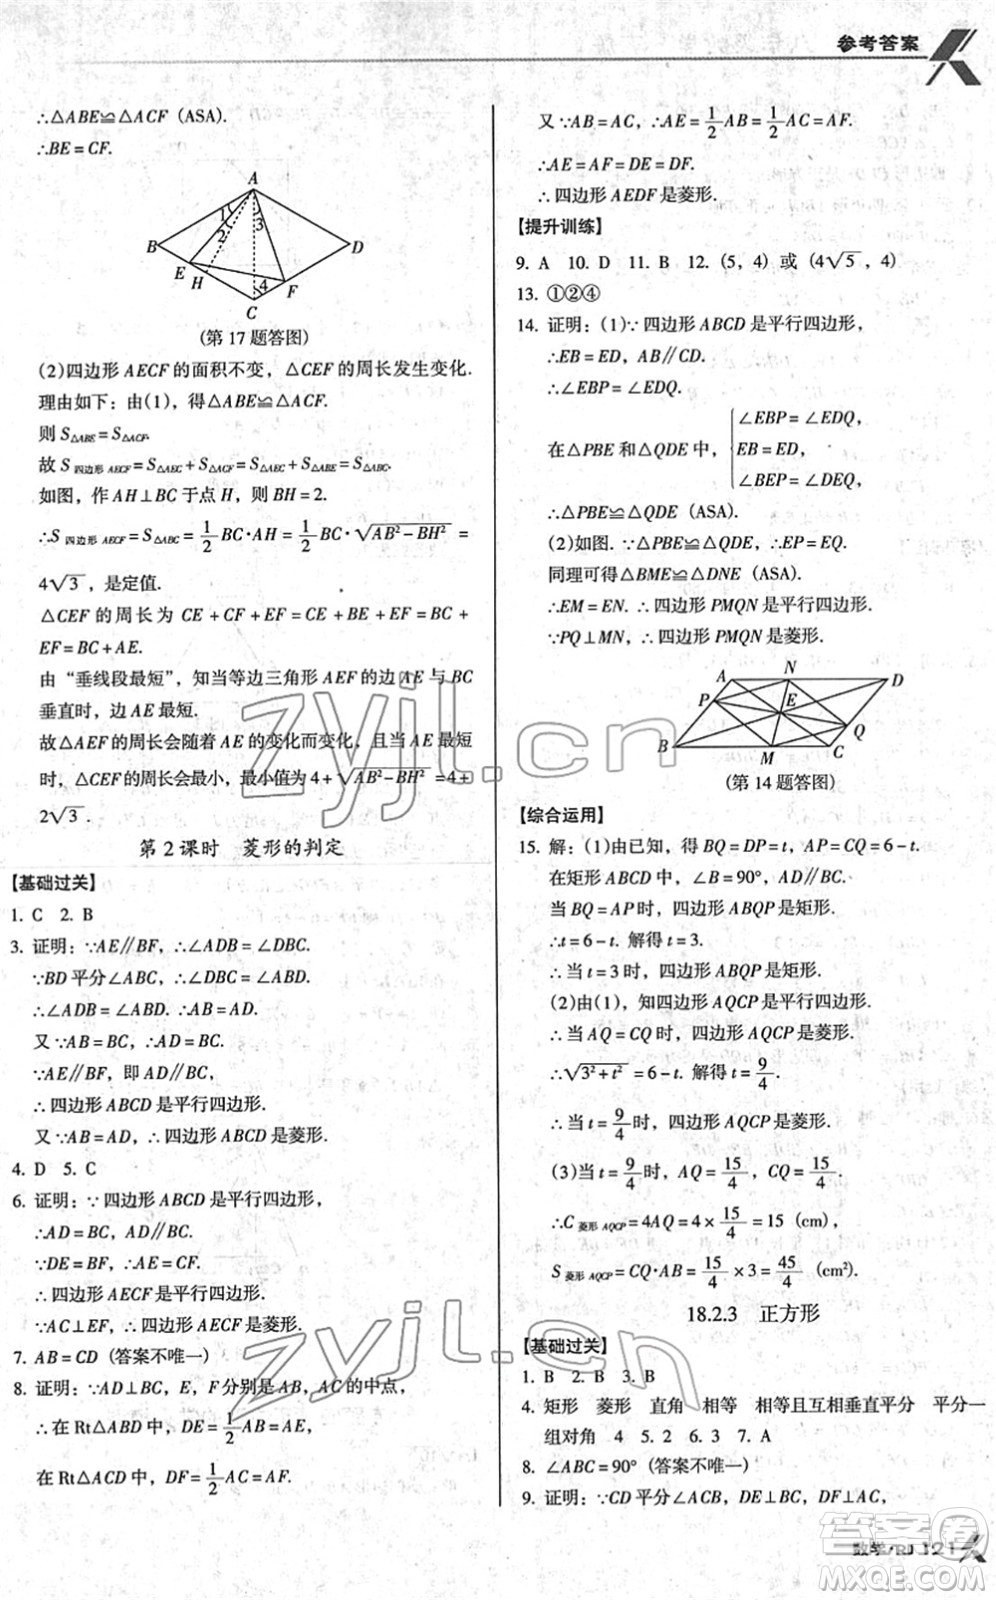 参考答案
∴△ABE≌△ACF (ASA).
∴BE=CF.
A
1
3
2
B
D
E
H
4
F
C
(第17题答图)
(2)四边形AECF的面积不变，△CEF的周长发生变化.
理由如下：由(1)，得△ABE≌△ACF.
则S△ABE=S△ACF.
故S四边形AECF=S△AEC+S△ACF=S△AEC+S△ABE=S△ABC.
如图，作AH⊥BC于点H，则BH=2.
∴S四边形AECF=S△ABC=1/2BC·AH=1/2BC·√(AB²-BH²)=
4√3，是定值.
△CEF的周长为CE+CF+EF=CE+BE+EF=BC+
EF=BC+AE.
由“垂线段最短”，知当等边三角形AEF的边AE与BC
垂直时，边AE最短.
故△AEF的周长会随着AE的变化而变化，且当AE最短
时，△CEF的周长会最小，最小值为4+√(AB²-BH²)=4+
2√3.
第2课时 菱形的判定
【基础过关】
1. C 2. B
3. 证明：∵AE∥BF，∴∠ADB=∠DBC.
∵BD平分∠ABC，∴∠DBC=∠ABD.
∴∠ADB=∠ABD. ∴AB=AD.
又∵AB=BC，∴AD=BC.
∵AE∥BF，即AD∥BC，
∴四边形ABCD是平行四边形.
又∵AB=AD，∴四边形ABCD是菱形.
4. D 5. C
6. 证明：∵四边形ABCD是平行四边形，
∴AD=BC，AD∥BC.
∵DE=BF，∴AE=CF.
∴四边形AECF是平行四边形.
∵AC⊥EF，∴四边形AECF是菱形.
7. AB=CD (答案不唯一)
8. 证明：∵AD⊥BC，E，F分别是AB，AC的中点，
∴在Rt△ABD中，DE=1/2AB=AE.
在Rt△ACD中，DF=1/2AC=AF.
又∵AB=AC，∴AE=1/2AB=1/2AC=AF.
∴AE=AF=DE=DF.
∴四边形AEDF是菱形.
【提升训练】
9. A 10. D 11. B 12. (5，4) 或 (4√5，4)
13. ①②④
14. 证明：(1)∵四边形ABCD是平行四边形，
∴EB=ED，AB∥CD.
∴∠EBP=∠EDQ.
在△PBE和△QDE中，{∠EBP=∠EDQ，
EB=ED，
∠BEP=∠DEQ，
∴△PBE≌△QDE (ASA).
(2)如图. ∵△PBE≌△QDE，∴EP=EQ.
同理可得△BME≌△DNE (ASA).
∴EM=EN. ∴四边形PMQN是平行四边形.
∵PQ⊥MN，∴四边形PMQN是菱形.
A
N
D
P
E
Q
B
M
C
(第14题答图)
【综合运用】
15. 解：(1)由已知，得BQ=DP=t，AP=CQ=6-t.
在矩形ABCD中，∠B=90°，AD∥BC.
当BQ=AP时，四边形ABQP是矩形.
∴t=6-t. 解得t=3.
∴当t=3时，四边形ABQP是矩形.
(2)由(1)，知四边形AQCP是平行四边形.
∴当AQ=CQ时，四边形AQCP是菱形.
∴√(3²+t²)=6-t. 解得t=9/4.
∴当t=9/4时，四边形AQCP是菱形.
(3)当t=9/4时，AQ=15/4，CQ=15/4.
∴C菱形AQCP=4AQ=4×15/4=15 (cm)，
S菱形AQCP=CQ·AB=15/4×3=45/4 (cm²).
18.2.3 正方形
【基础过关】
1. B 2. B 3. B
4. 矩形 菱形 直角 相等 相等且互相垂直平分 平分一
组对角 4 5. 2 6. 2 7. A
8. ∠ABC=90° (答案不唯一)
9. 证明：∵CD平分∠ACB，DE⊥BC，DF⊥AC，
数学·RJ 121
zyjl.cn
zyjl.cn
答案圈
MXQE.COM